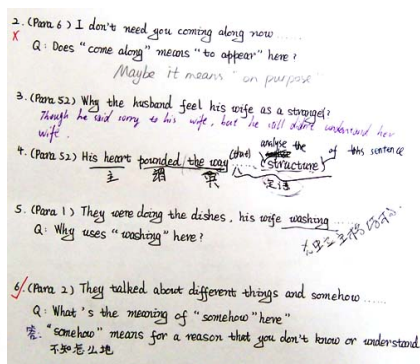 2. (Para 6) I don't need you coming along now ......
X
Q: Does "come along" means "to appear" here?
Maybe it means "on purpose"
3. (Para 52) Why the husband feel his wife as a stranger?
Though he said sorry to his wife, but he still didn't understand her
wife.
4. (Para 52) His heart pounded the way (that) ...... analyse the (structure) of this sentence
主 谓 定语
5. (Para 1) They were doing the dishes, his wife washing ......
Q: Why uses "washing" here?
6. (Para 2) They talked about different things and somehow ......
Q: What's the meaning of "somehow" here"
答: "somehow" means for a reason that you don't know or understand
不知怎么地